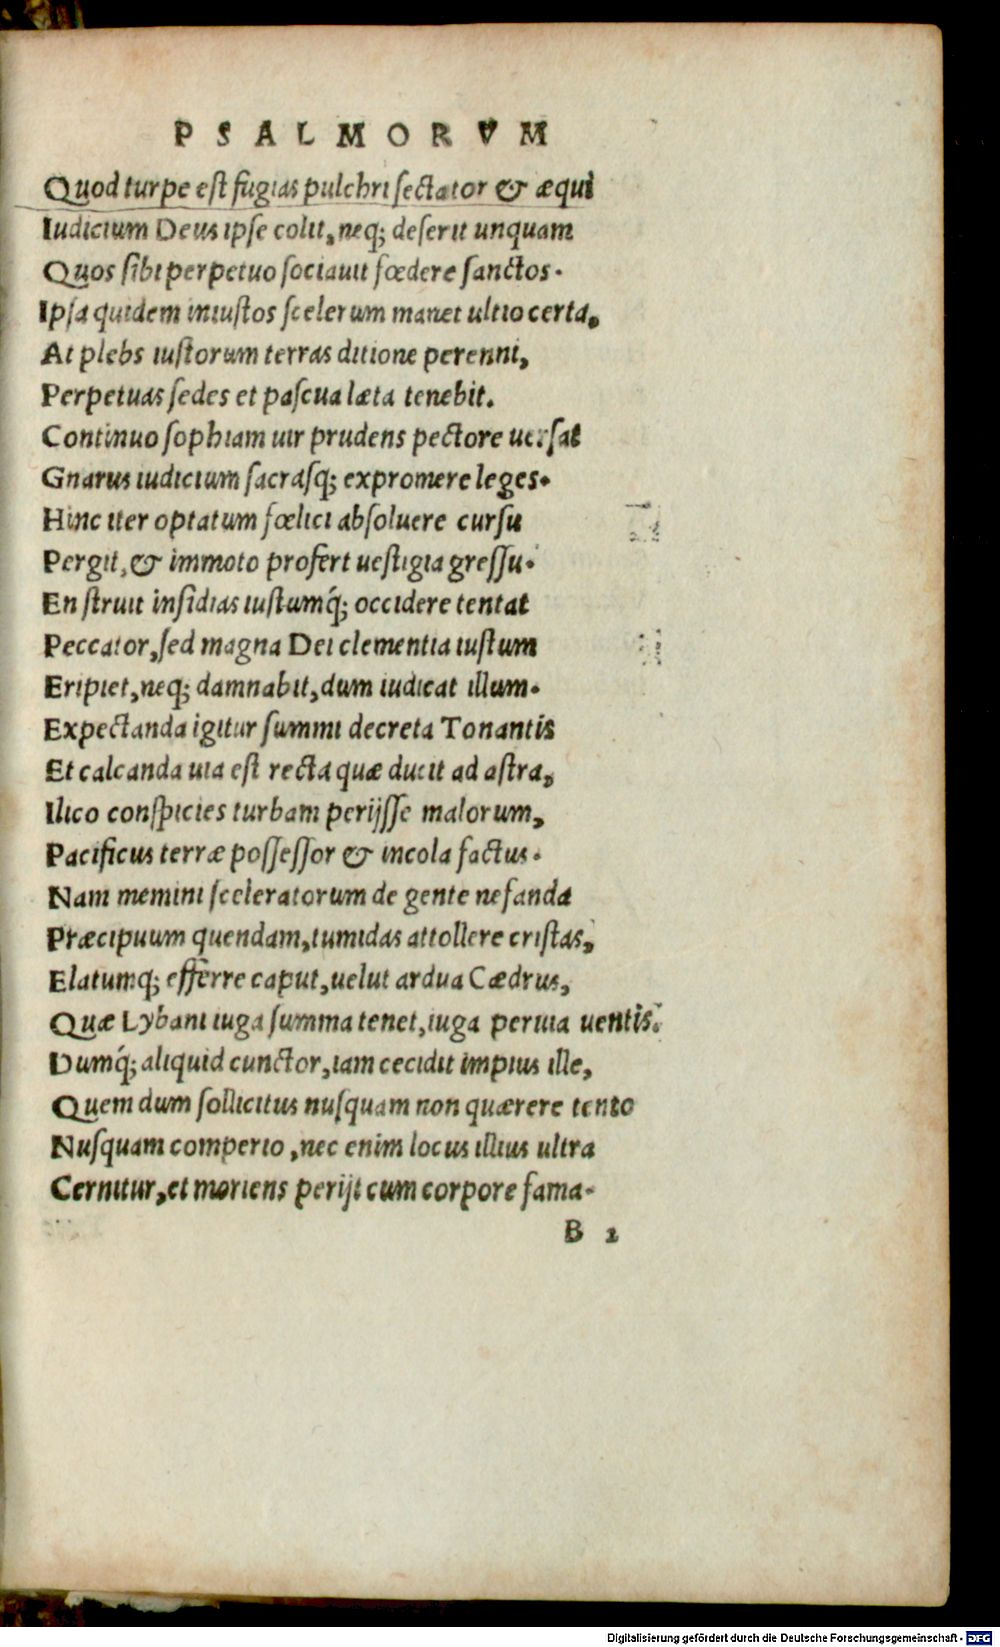 PSALMORVM
Quod turpe est fugias pulchri sectator & æqui
Iudicium Deus ipse colit, neq; deserit unquam
Quos sibi perpetuo sociauit fœdere sanctos.
Ipsa quidem iniustos scelerum manet ultio certa,
At plebs iustorum terras ditione perenni,
Perpetuas sedes et pascua læta tenebit.
Continuo sophiam uir prudens pectore uersat
Gnarus iudicium sacrasq; expromere leges.
Hinc iter optatum fœlici absoluere cursu
Pergit, & immoto profert uestigia gressu.
En struit insidias iustumq́; occidere tentat
Peccator, sed magna Dei clementia iustum
Eripiet, neq; damnabit, dum iudicat illum.
Expectanda igitur summi decreta Tonantis
Et calcanda uia est recta quæ ducit ad astra,
Ilico conspicies turbam perijsse malorum,
Pacificus terræ possessor & incola factus.
Nam memini sceleratorum de gente nefanda
Præcipuum quendam, tumidas attollere cristas,
Elatumq; efferre caput, uelut ardua Cædrus,
Quæ Lybani iuga summa tenet, iuga peruia uentis.
Dumq́; aliquid cunctor, iam cecidit impius ille,
Quem dum sollicitus nusquam non quærere tento
Nusquam comperio, nec enim locus illius ultra
Cernitur, et moriens perijt cum corpore fama.
B 2
Digitalisierung gefördert durch die Deutsche Forschungsgemeinschaft - DFG